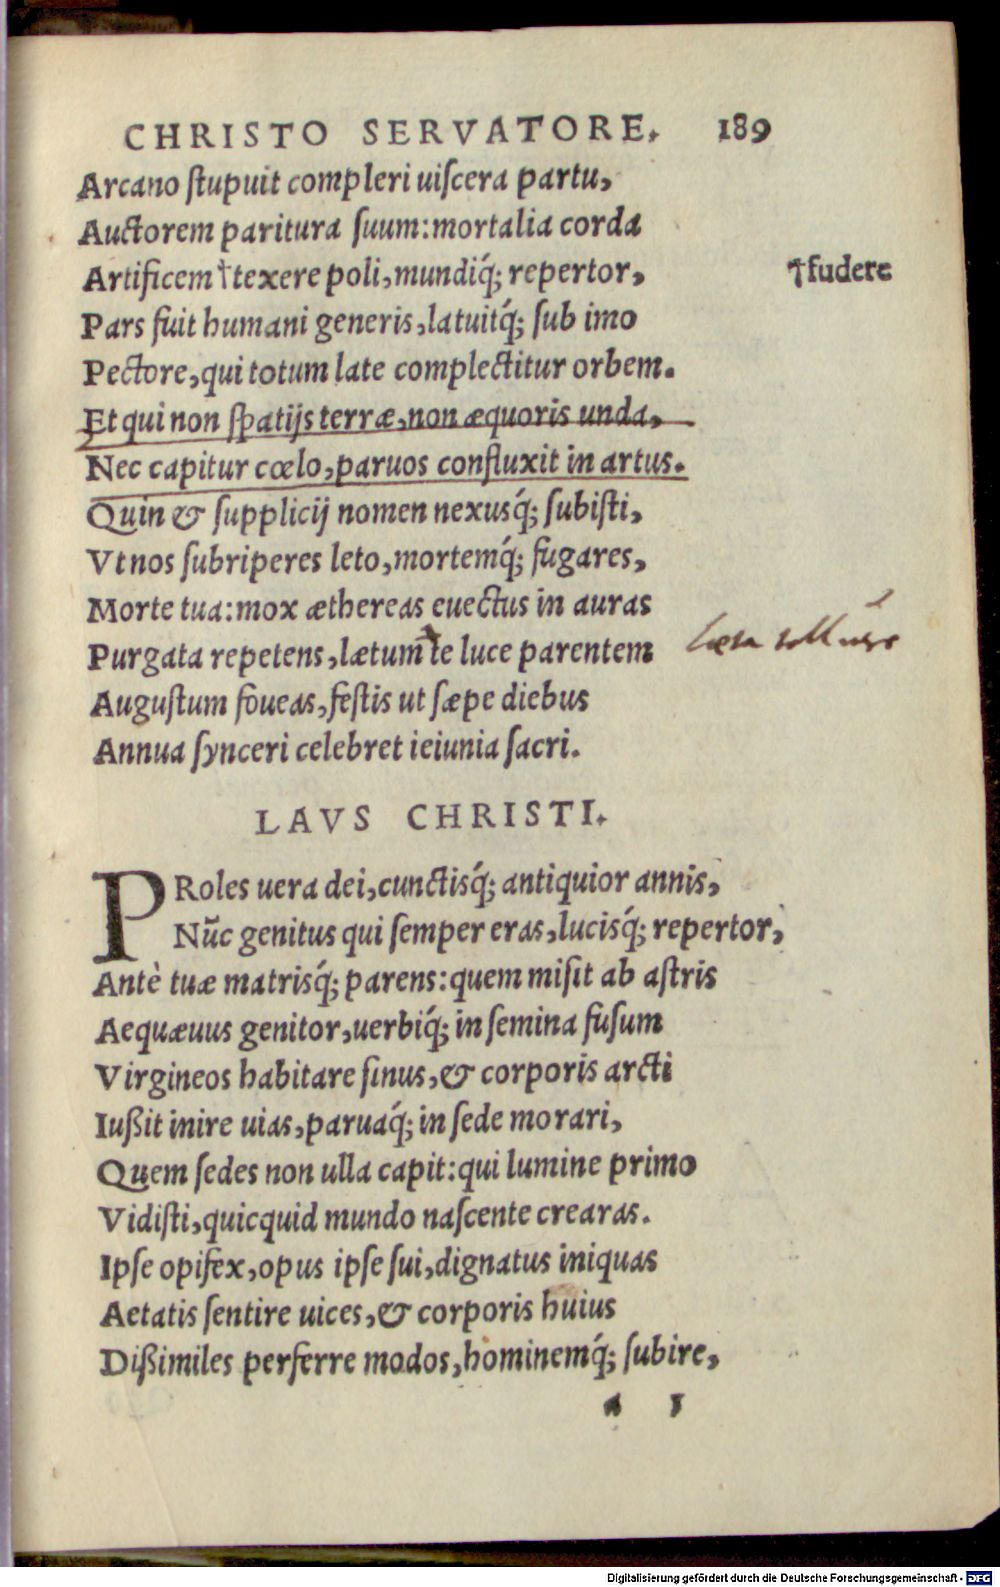 CHRISTO SERVATORE. 189
Arcano ſtupuit compleri uiſcera partu,
Auctorem paritura ſuum: mortalia corda
Artificem †texere poli, mundiq́; repertor, †fudere
Pars fuit humani generis, latuitq́; ſub imo
Pectore, qui totum late complectitur orbem.
Et qui non ſpatijs terræ, non æquoris unda,
Nec capitur cœlo, paruos confluxit in artus.
Quin & ſupplicij nomen nexusq́; ſubiſti,
Vt nos ſubriperes leto, mortemq́; fugares,
Morte tua: mox æthereas euectus in auras
Purgata repetens, lætum te luce parentem
Auguſtum foueas, feſtis ut ſæpe diebus
Annua ſynceri celebret ieiunia ſacri.
LAVS CHRISTI.
PRoles uera dei, cunctisq́; antiquior annis,
Nūc genitus qui ſemper eras, lucisq́; repertor,
Antè tuæ matrisq́; parens: quem miſit ab aſtris
Aequæuus genitor, uerbiq́; in ſemina fuſum
Virgineos habitare ſinus, & corporis arcti
Iußit inire uias, paruaq́; in ſede morari,
Quem ſedes non ulla capit: qui lumine primo
Vidiſti, quicquid mundo naſcente crearas.
Ipſe opifex, opus ipſe ſui, dignatus iniquas
Aetatis ſentire uices, & corporis huius
Dißimiles perferre modos, hominemq́; ſubire,
Digitalisierung gefördert durch die Deutsche Forschungsgemeinschaft - DFG